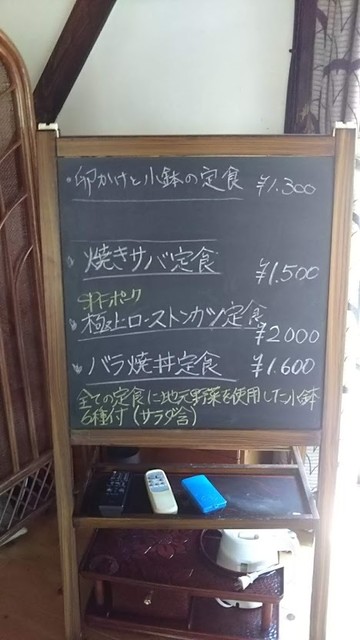 ・卵かけと小鉢の定食 ¥1.300
焼きサバ定食 ¥1.500
極上ローストンカツ定食 ¥2000
バラ焼丼定食 ¥1.600
全ての定食に地元野菜を使用した小鉢
6種付(サラダ含)